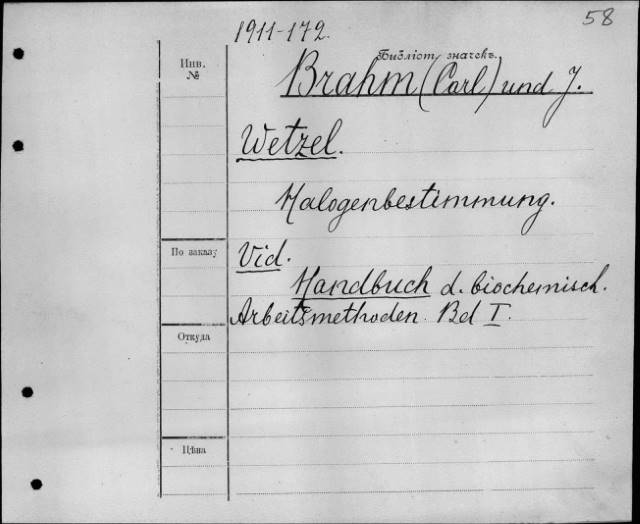 58
1911-172.
Библіот. значекъ.
Инв.
№
Brahm (Carl) und J.
Wetzel.
Halogenbestimmung.
По заказу
Vid.
Handbuch d. biochemisch.
Arbeitsmethoden. Bd I.
Откуда
Цѣна